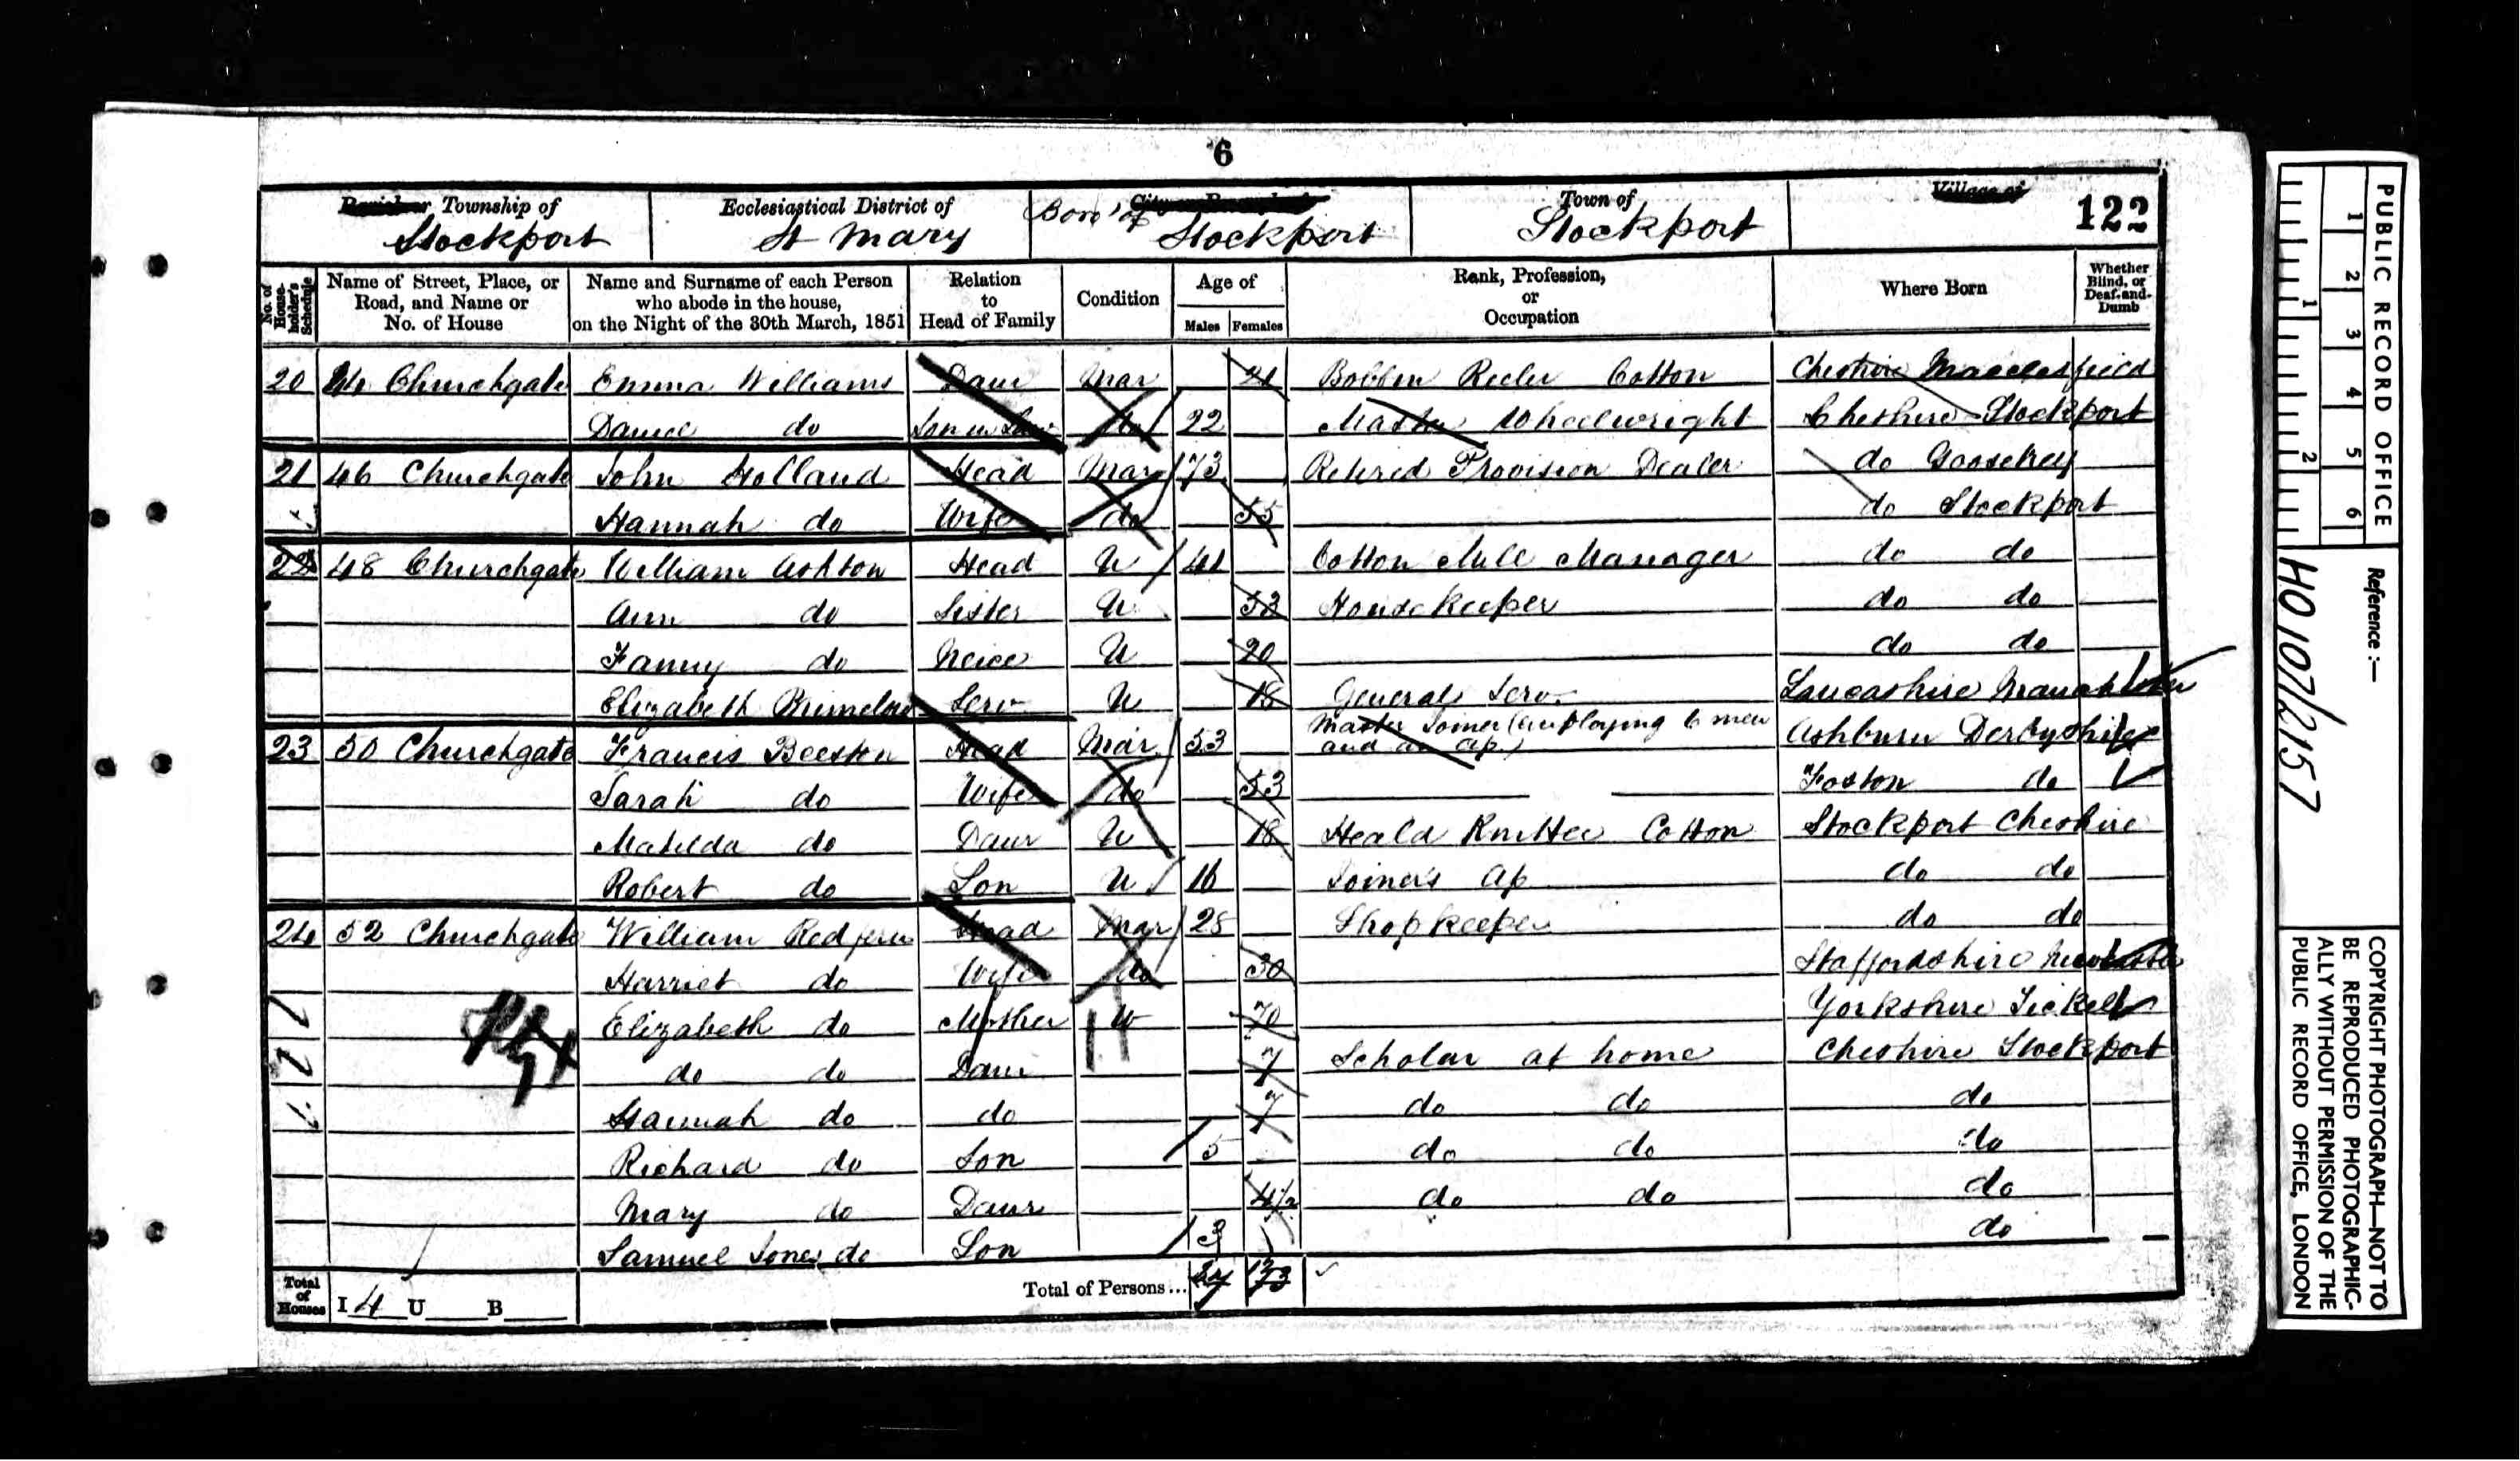 6
Parish or Township of
Stockport
Ecclesiastical District of
St Mary
Boro' of
Stockport
Town of
Stockport
Village of
122
No. of House-holder's Schedule
Name of Street, Place, or Road, and Name or No. of House
Name and Surname of each Person who abode in the house, on the Night of the 30th March, 1851
Relation to Head of Family
Condition
Age of
Males
Females
Rank, Profession, or Occupation
Where Born
Whether Blind, or Deaf-and-Dumb
20 44 Churchgate Emma Williams Daur Mar 21 Bobbin Reeler Cotton Cheshire Macclesfield
Daniel do Son in Law do 22 Master Wheelwright Cheshire Stockport
21 46 Churchgate John Holland Head Mar 73 Retired Provision Dealer do Goostrey
Hannah do Wife do 55 do Stockport
22 48 Churchgate William Ashton Head U 41 Cotton Mill Manager do do
Ann do Sister U 52 Housekeeper do do
Fanny do Neice U 20 do do
Elizabeth Serv U 18 General Serv. Lancashire Manchester
23 50 Churchgate Francis Beeston Head Mar 53 Master Joiner (employing 6 men and an ap.) Ashburn Derbyshire
Sarah do Wife do 53 Foston do
Matilda do Daur U 18 Heald Knitter Cotton Stockport Cheshire
Robert do Son U 16 Joiner's ap do do
24 52 Churchgate William Redfern Head Mar 28 Shopkeeper do do
Harriet do Wife do 30 Staffordshire Newcastle
Elizabeth do Mother W 70 Yorkshire Tickell
do do Daur 7 Scholar at home Cheshire Stockport
Hannah do do 7 do do do
Richard do Son 5 do do do
Mary do Daur 4½ do do do
Samuel Jones do Son 3 do
Total of Houses
I 4 U B
Total of Persons...
PUBLIC RECORD OFFICE
1 2 3 4 5 6
1 2
Reference :—
HO 107/2157
COPYRIGHT PHOTOGRAPH—NOT TO
BE REPRODUCED PHOTOGRAPHIC-
ALLY WITHOUT PERMISSION OF THE
PUBLIC RECORD OFFICE, LONDON